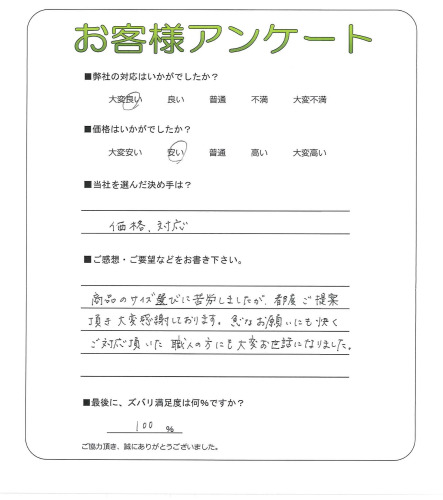 お客様アンケート
■弊社の対応はいかがでしたか？
大変良い　良い　普通　不満　大変不満
■価格はいかがでしたか？
大変安い　安い　普通　高い　大変高い
■当社を選んだ決め手は？
価格、対応
■ご感想・ご要望などをお書き下さい。
商品のサイズ選びに苦労しましたが、都度ご提案
頂き大変感謝しております。急なお願いにも快く
ご対応頂いた職人の方にも大変お世話になりました。
■最後に、ズバリ満足度は何%ですか？
100 %
ご協力頂き、誠にありがとうございました。